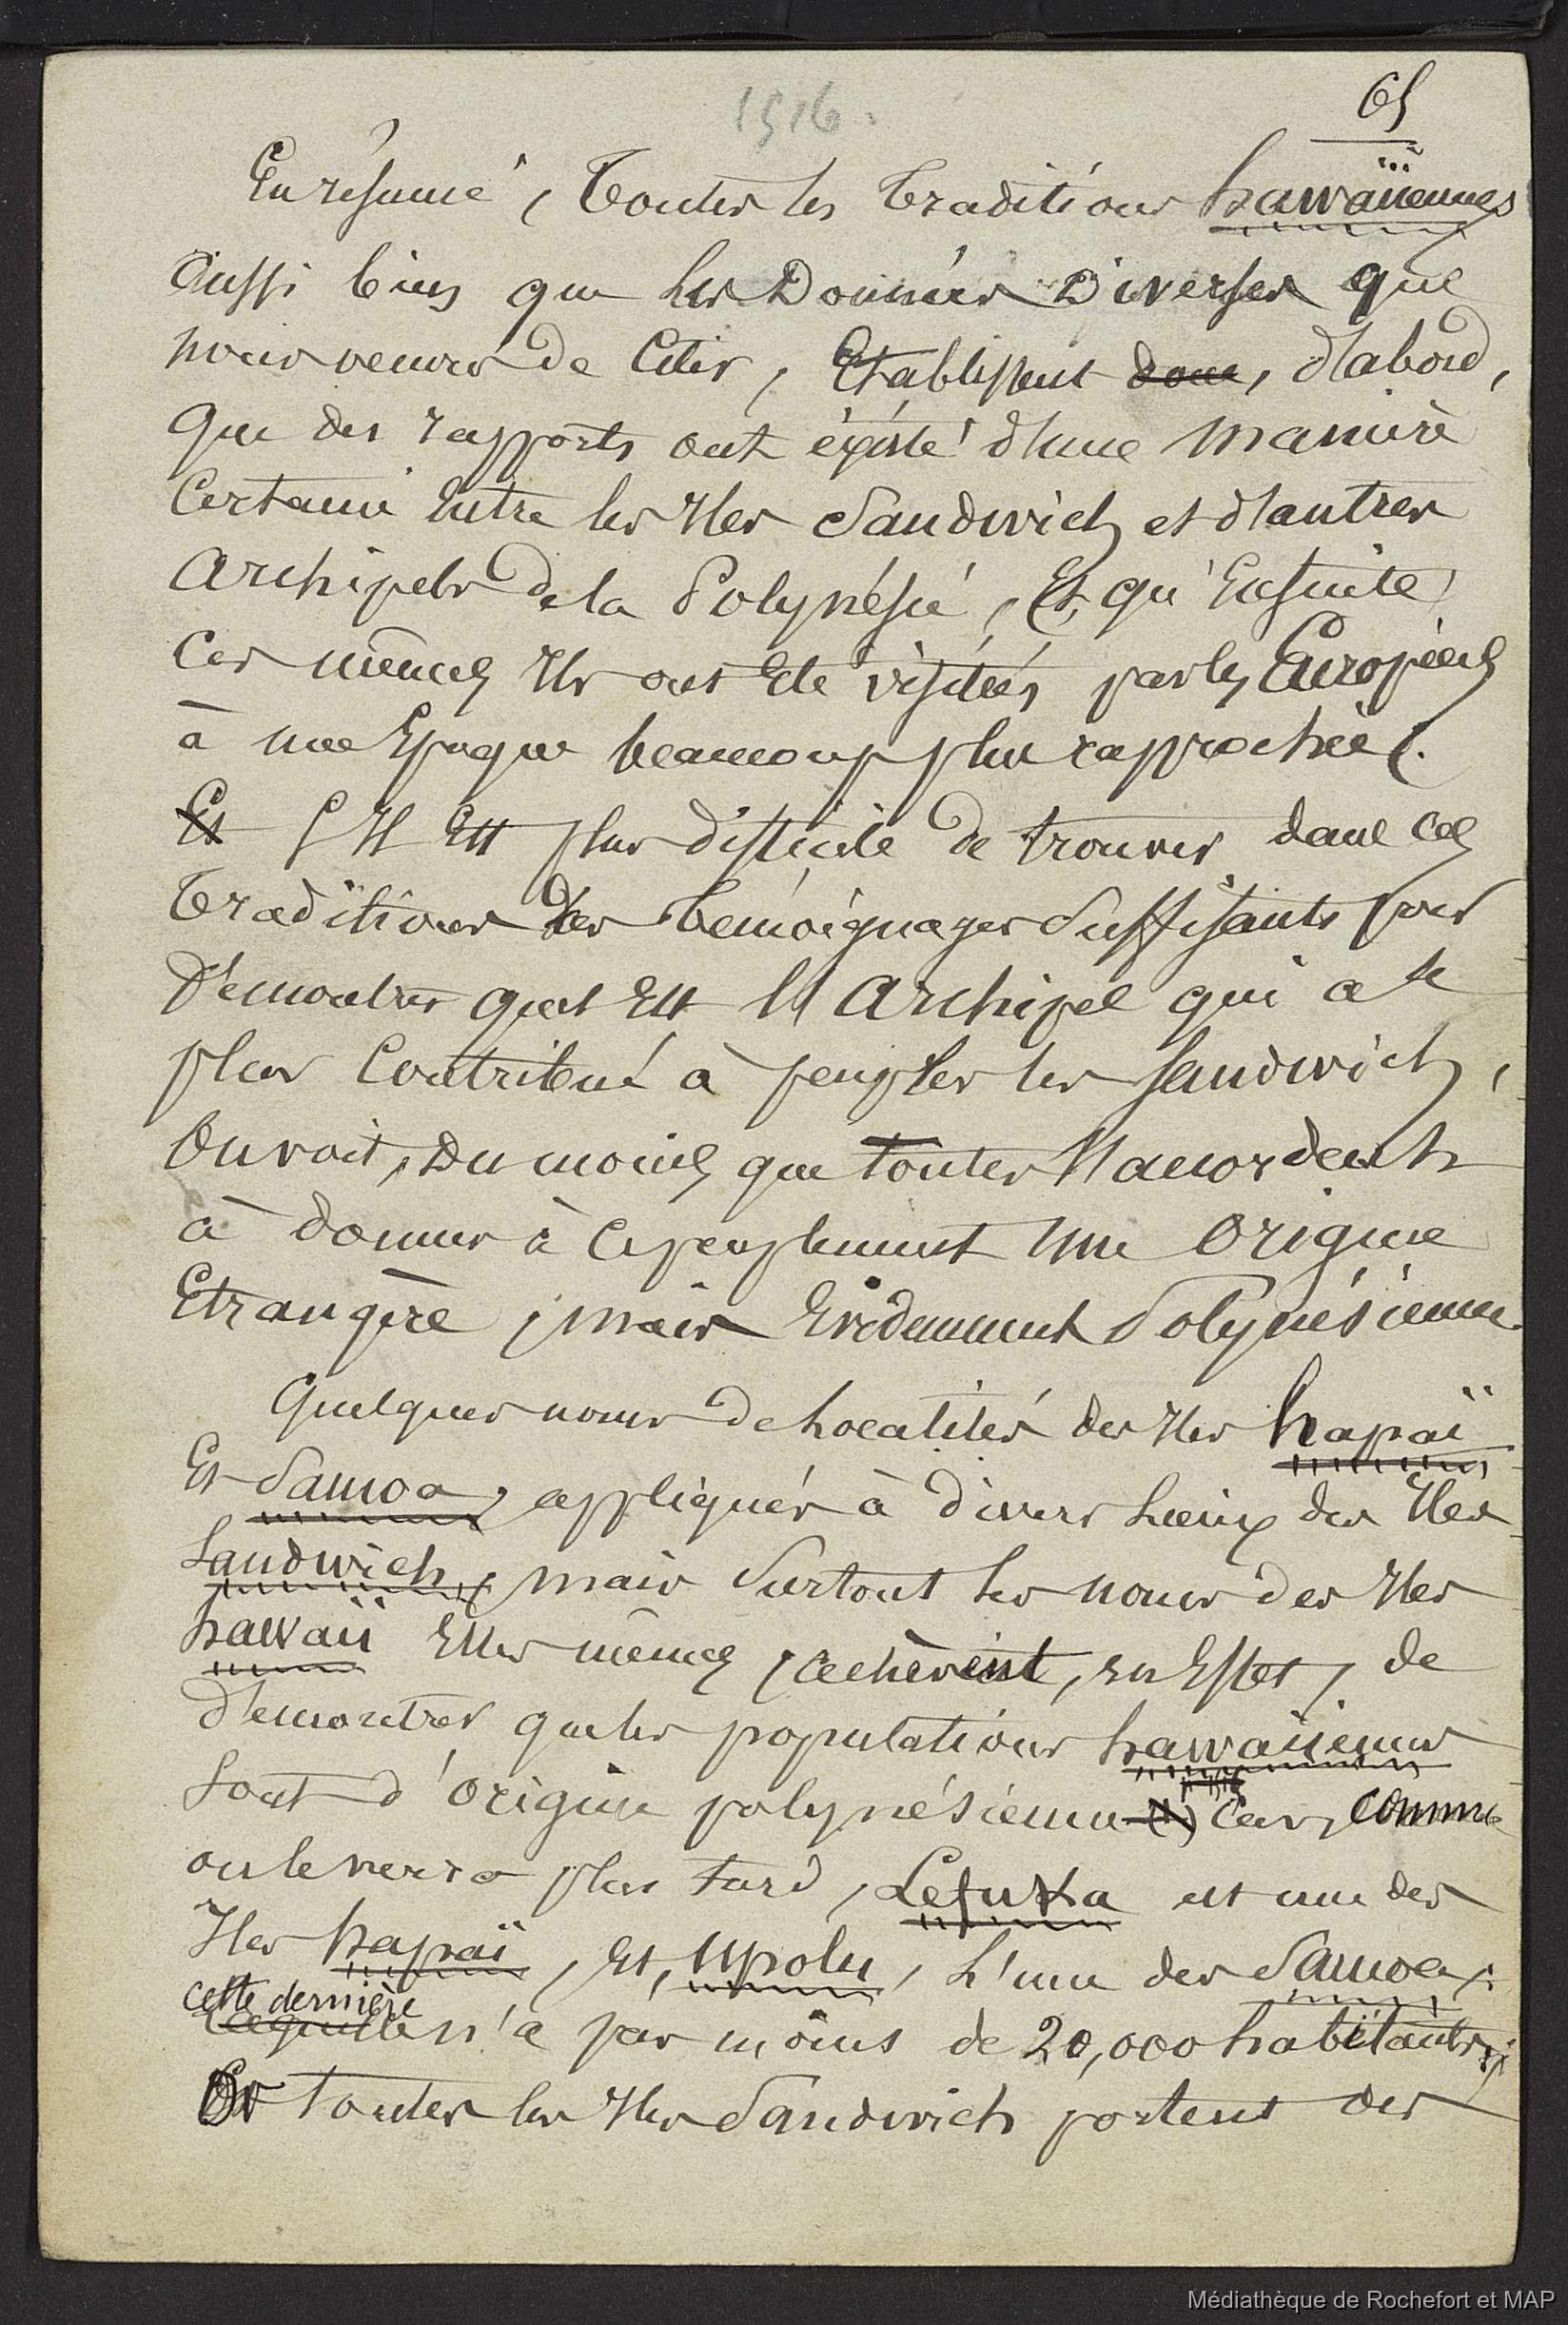 1516.
65
En résumé, Toutes les traditions hawaïiennes
Aussi bien que les Données Diverses que
nous venons de Citer, Etablissent donc, d'abord,
que des rapports ont éxisté d'une manière
Certaine Entre les Iles Sandwich et d'autres
Archipels de la Polynésie, Et qu'Ensuite
Ces mêmes Iles ont Eté visitées par les Européens
à une Epoque beaucoup plus rapprochée.
Et S'Il Est plus difficile de trouver dans ces
Traditions des témoignages Suffisants pour
Démontrer quel Est l'Archipel qui a le
plus Contribué à peupler les Sandwich,
On voit, Du moins que toutes s'accordent
à donner à Ce peuplement une Origine
Etrangère, mais Evidemment Polynésienne.
Quelques noms de Localités des Iles hapaï
Et Samoa, appliqués à divers Lieux des Iles
Sandwich, mais Surtout les noms des Iles
hawaïi Elles mêmes, achèvent, en Effet, de
démontrer que les populations hawaïiennes
Sont d'Origine polynésienne (1) Car, comme
on le verra plus tard, Lefuka est une des
Iles hapaï, Et, Upolu, L'une des Samoa;
cette dernière
Laquelle n'a pas moins de 20,000 habitants;
Or toutes les Iles Sandwich portent des
Médiathèque de Rochefort et MAP